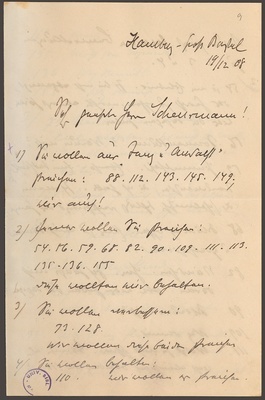 9
Hamburg - Gross Borstel
19/12 08
Sehr geehrter Herr Scheurmann!
1) Sie wollen aus
streichen: 88. 112. 143. 145. 149,
wir auch!
2) Ferner wollen Sie streichen:
54. 56. 59. 68. 82. 90. 109. 111. 113.
135. 136. 155
diese wollten wir behalten.
3) Sie wollen
73. 128.
wir wollen diese beiden streichen
4) Sie wollen behalten:
110. wir wollen es streichen.